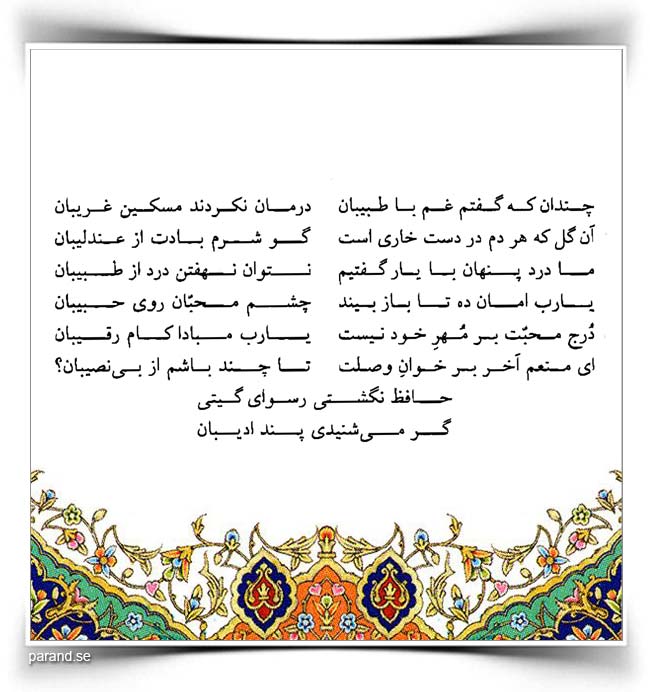 چندان که گفتم غم با طبیبان درمان نکردند مسکین غریبان
آن گل که هر دم در دست خاری است گو شرم بادت از عندلیبان
ما درد پنهان با یار گفتیم نتوان نهفتن درد از طبیبان
یارب امان ده تا باز بیند چشم محبّان روی حبیبان
دُرج محبّت بر مُهرِ خود نیست یارب مبادا کام رقیبان
ای منعم آخر بر خوانِ وصلت تا چند باشم از بی‌نصیبان؟
حافظ نگشتی رسوای گیتی
گر می‌شنیدی پند ادیبان
parand.se